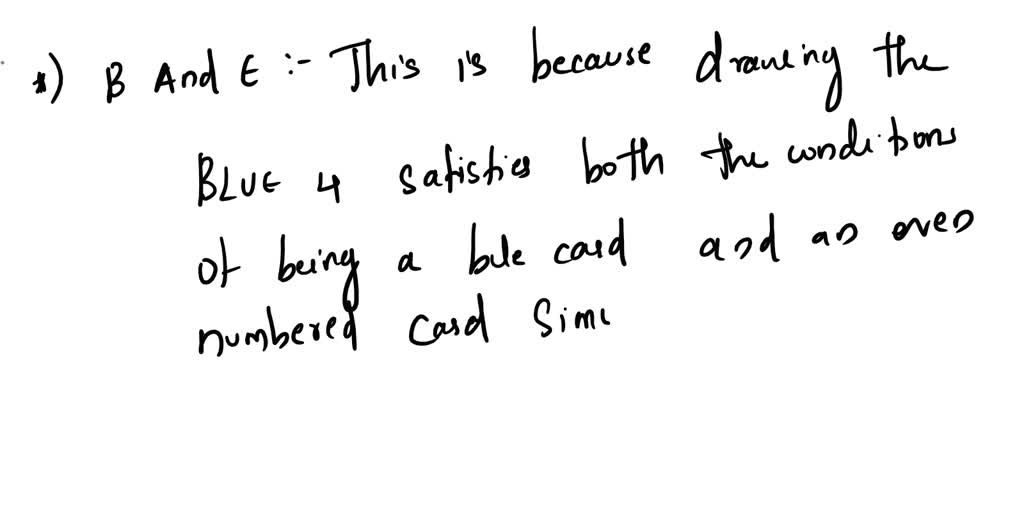 *) B And E :- This is because drawing the
BLUE 4 satisfies both the conditions
of being a bule card and an even
numbered card Simu